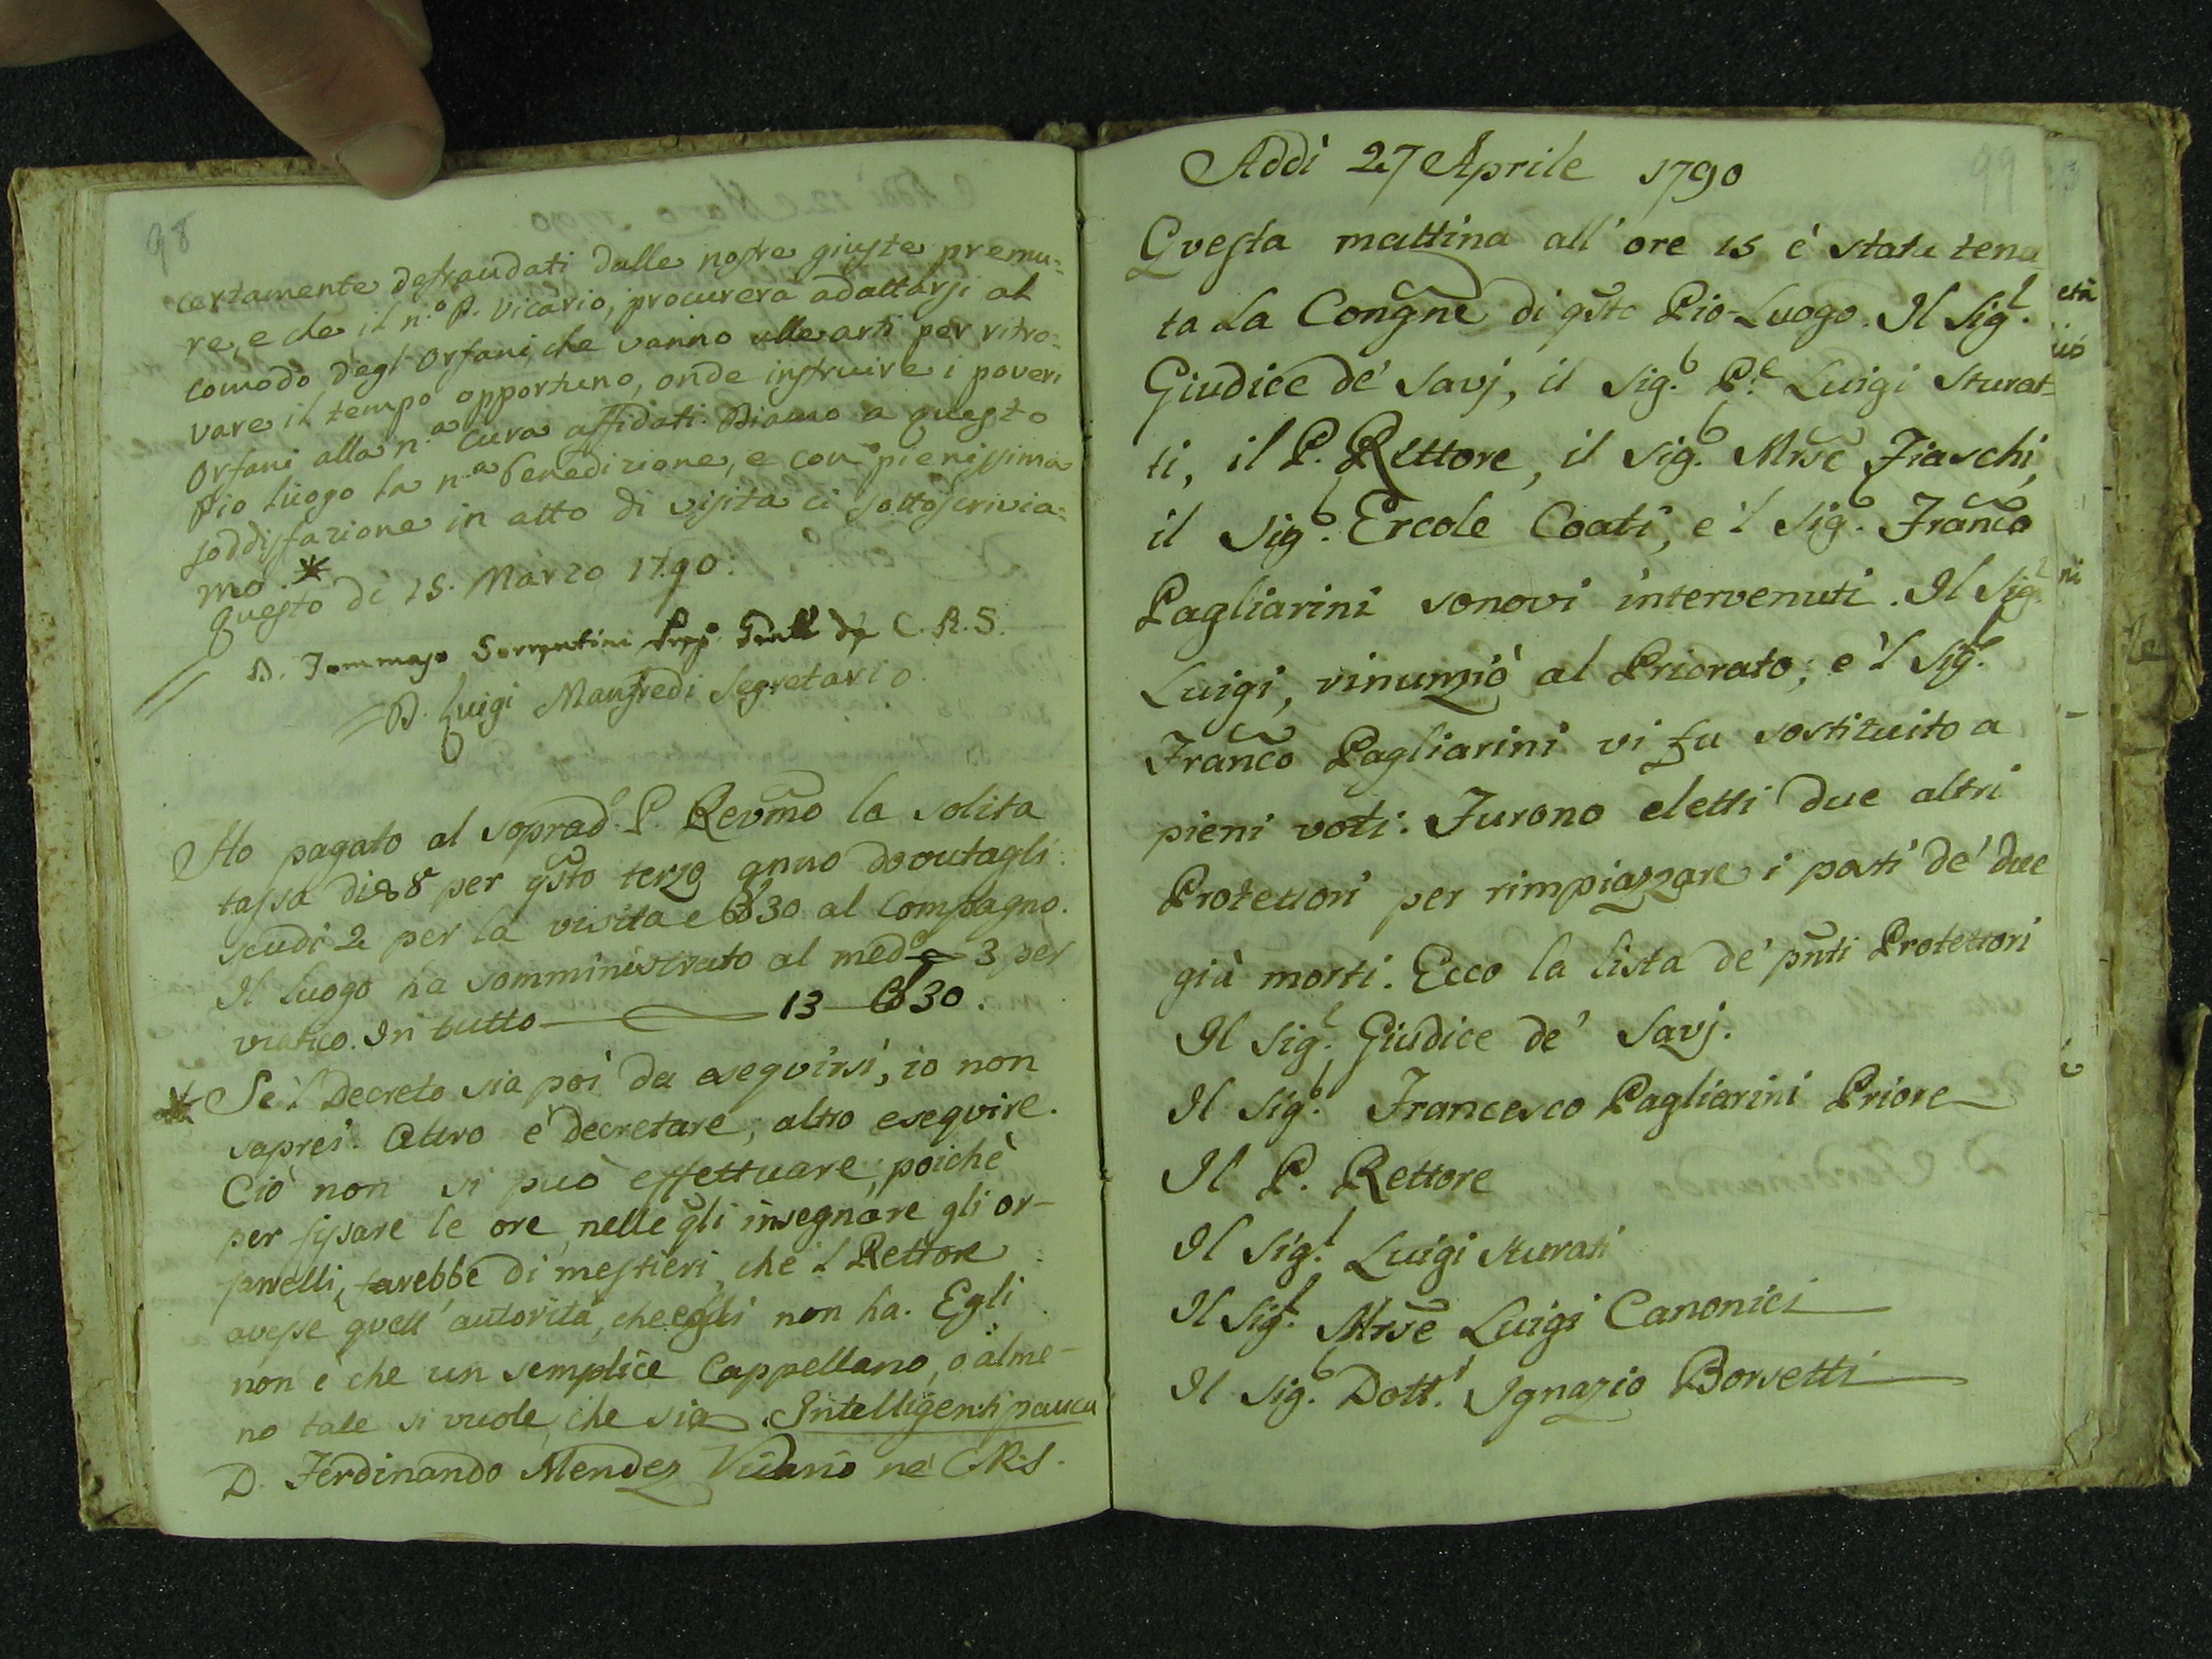 98
certamente defraudati dalle nostre giuste premu-
re, e che il n.o P. Vicario, procurerà adattarsi al
comodo degl'Orfani, che vanno alle arti per ritro-
vare il tempo opportuno, onde instruire i poveri
Orfani alla n.a cura affidati. Diamo a questo
Pio luogo la n.a benedizione, e con pienissima
soddisfazione in atto di visita ci sottoscrivia-
mo. *
questo dì 15. Marzo 1790.
D. Tommaso Sorrentini Prep.o Gnãl de C. R. S.
D. Luigi Manfredi Segretario.
Ho pagato al soprad.o P. Revm̃o la solita
tassa di 8 per qsto terzo anno dovutagli
scudi 2 per la visita e 30 al Compagno.
Il luogo ha somministrato al med.o 3 per
viatico. In tutto 13 30.
* Se'l Decreto sia poi da eseguirsi, io non
saprei. Altro è decretare, altro eseguire.
Ciò non si può effettuare, poichè
per fissare le ore, nelle qli insegnare gli or-
fanelli, sarebbe di mestieri, che 'l Rettore
avesse quell'autorità, che egli non ha. Egli
non è che un semplice Cappellano, o alme-
no tale si vuole, che sia. Intelligenti pauca
D. Ferdinando Mendez Vicario nè C.R.S.
99
Addì 27 Aprile 1790
Questa mattina all'ore 15 è stata tenu
ta La Congñe di qsto Pio-Luogo. Il Sig.r
Giudice de' Savj, il Sig.r P.e Luigi Sturat-
ti, il P. Rettore, il Sig.r Mrse Fiaschi,
il Sig.r Ercole Coati, e 'l Sig.r Franco
Pagliarini sonovi intervenuti. Il Sig.r
Luigi, rinunziò al Priorato; e 'l Sig.r
Franco Pagliarini vi fu sostituito a
pieni voti. Furono eletti due altri
Protettori per rimpiazzare i posti de' due
già morti. Ecco la lista de' pñti Protettori
Il Sig.r Giudice de' Savj.
Il Sig.r Francesco Pagliarini Priore
Il P. Rettore
Il Sig.r Luigi Sturati
Il Sig.r Mrse Luigi Canonici
Il Sig.r Dott.r Ignazio Borsetti